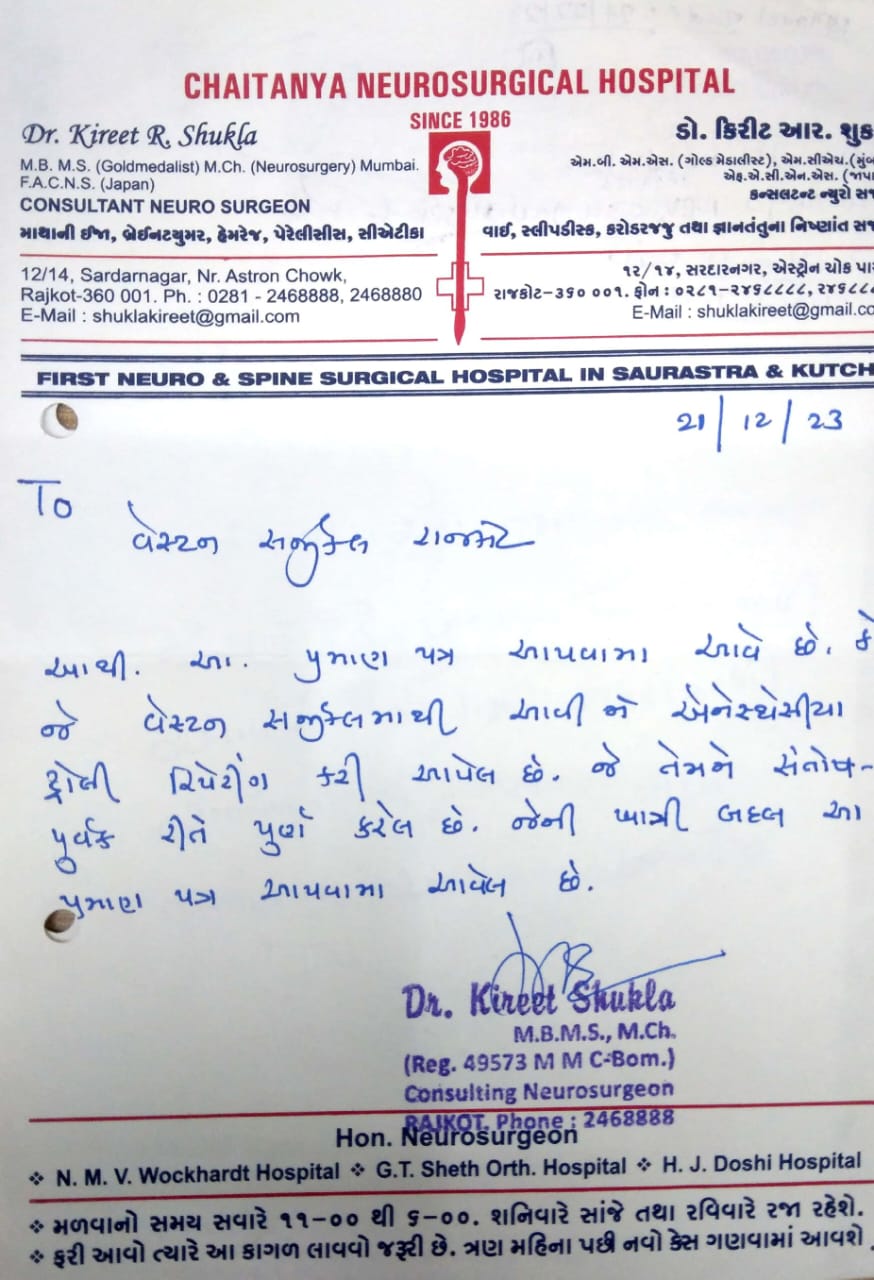 CHAITANYA NEUROSURGICAL HOSPITAL
SINCE 1986
Dr. Kireet R. Shukla
M.B. M.S. (Goldmedalist) M.Ch. (Neurosurgery) Mumbai.
F.A.C.N.S. (Japan)
CONSULTANT NEURO SURGEON
માથાની ઈજા, બ્રેઈનટયુમર, હેમરેજ, પેરેલીસીસ, સીએટીકા
12/14, Sardarnagar, Nr. Astron Chowk,
Rajkot-360 001. Ph. : 0281 - 2468888, 2468880
E-Mail : shuklakireet@gmail.com
ડો. કિરીટ આર. શુક
એમ.બી. એમ.એસ. (ગોલ્ડ મેડાલીસ્ટ), એમ.સીએચ.(મુંબ
એફ.એ.સી.એન.એસ. (જાપા
કન્સલટન્ટ ન્યુરો સજ
વાઈ, સ્લીપડીસ્ક, કરોડરજજુ તથા જ્ઞાનતંતુના નિષ્ણાંત સજ
૧૨/૧૪, સરદારનગર, એસ્ટ્રોન ચોક પાસ
રાજકોટ-૩૬૦ ૦૦૧. ફોન : ૦૨૮૧-૨૪૬૮૮૮૮, ૨૪૬૮૮
E-Mail : shuklakireet@gmail.co
FIRST NEURO & SPINE SURGICAL HOSPITAL IN SAURASTRA & KUTCH
21/12/23
To
વેસ્ટન સર્જીકલ રાજકોટ
આથી. આ. પ્રમાણ પત્ર આપવામા આવે છે. કે
જે વેસ્ટન સર્જીકલમાથી આવી ને એનેસ્થેસીયા
ટ્રોલી રિપેરીંગ કરી આપેલ છે. જે તેમને સંતોષ-
પુર્વક રીતે પુર્ણ કરેલ છે. જેની ખાત્રી બદલ આ
પ્રમાણ પત્ર આપવામા આવેલ છે.
Dr. Kireet Shukla
M.B.M.S., M.Ch.
(Reg. 49573 M M C-Bom.)
Consulting Neurosurgeon
RAJKOT. Phone : 2468888
Hon. Neurosurgeon
❖ N. M. V. Wockhardt Hospital ❖ G.T. Sheth Orth. Hospital ❖ H. J. Doshi Hospital
❖ મળવાનો સમય સવારે ૧૧-૦૦ થી ૬-૦૦. શનિવારે સાંજે તથા રવિવારે રજા રહેશે.
❖ ફરી આવો ત્યારે આ કાગળ લાવવો જરૂરી છે. ત્રણ મહિના પછી નવો કેસ ગણવામાં આવશે.